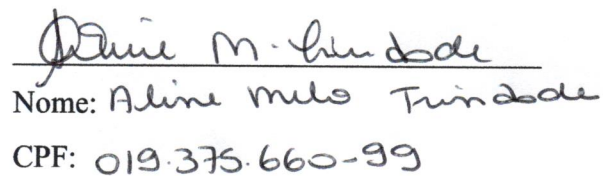 Aline M. Trindade
Nome: Aline Melo Trindade
CPF: 019.375.660-99